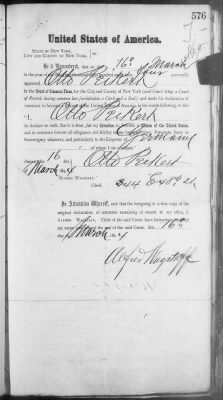 576
United States of America.
STATE OF NEW YORK,
CITY AND COUNTY OF NEW YORK,
Be it Remembered, that on 16th of March
in the year of
appeared Otto Reikert
In the Court of Common Pleas, for the City and County of New York (said Court being a Court of
Record, having common law jurisdiction, a Clerk and a Seal), and made his declaration of
intention to become a Citizen of the United States of America, in the words following, to wit:
"I, Otto Reikert
do declare on oath, that it is bona fide my intention to become a Citizen of the United States,
and to renounce forever all allegiance and fidelity to any foreign Prince, Potentate, State or
Sovereignty whatever, and particularly to the Emperor of Germany
of whom I am a subject."
Sworn this 16
day of March
Otto Reikert
ALFRED WAGSTAFF,
Clerk.
344 E
In Attestation Whereof, and that the foregoing is a true copy of the
original declaration of intention remaining of record in my office, I
ALFRED WAGSTAFF, Clerk of the said Court, have hereunto subscribed
my name and affixed the seal of the said Court, this 16th
day of March
Alfred Wagstaff